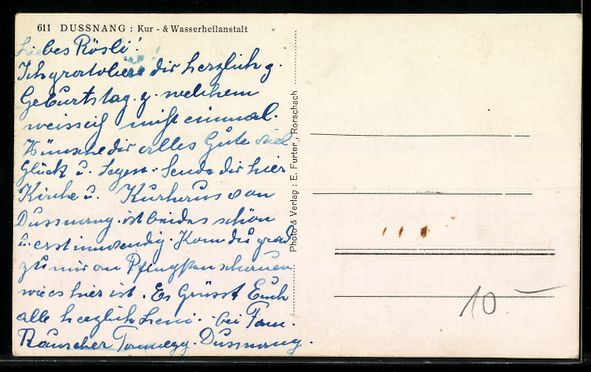 611 DUSSNANG : Kur - & Wasserheilanstalt
Liebes Rösli!
Ich gratuliere dir herzlich z.
Geburtstag. z. welchem
weiss ich nicht einmal.
Wünsche dir alles Gute viel
Glück u. Segen. Sende dir hier
Kirche u. Kurhaus von
Dussnang. ist beides schön
u. erst inwendig. Komm du grad
zu mir an Pfingsten schauen
wie es hier ist. Es Grüsst Euch
alle herzlich Leni. bei Fam.
Rauscher Tannegg. Dussnang.
Photo & Verlag : E. Furter, Rorschach
10.-